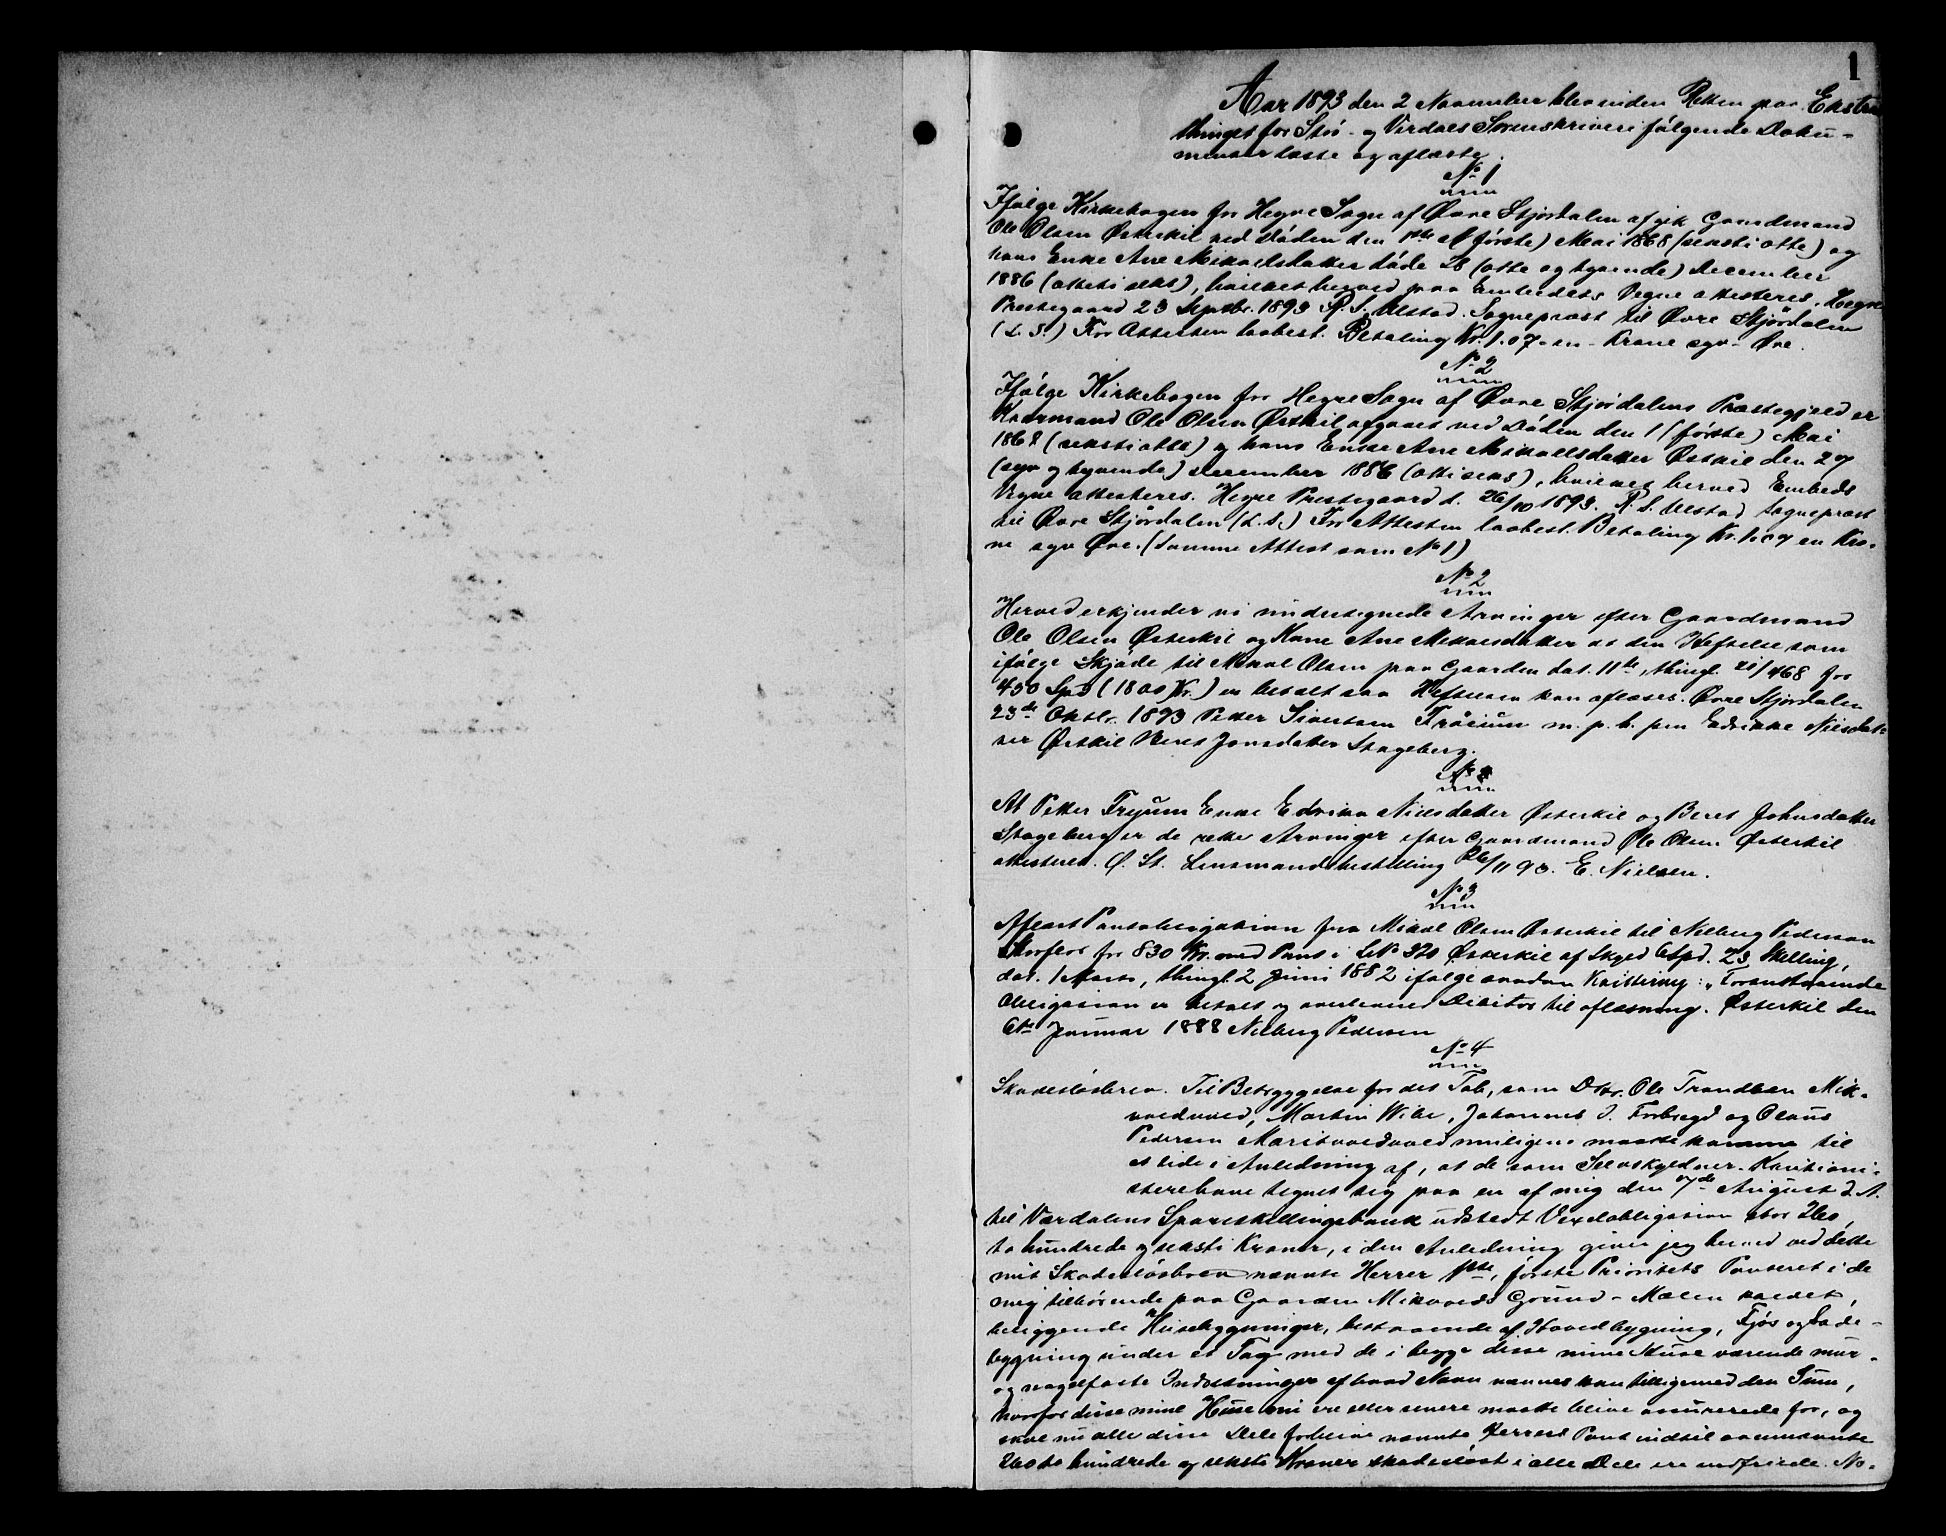 1
Aar 1893 den 2 November blev inden Retten paa Extra
thinget for Stjør- og Værdals Sorenskriveri følgende Doku-
menter læste og aflæste.
No 1
Ifølge Kirkebogen for Hegre Sogn af Øvre Stjørdalen afgik Gaardmand
Ole Olsen Østerkil ved Døden den 1ste (første) Mai 1868 (seksti otte) og
hans Enke Ane Mikaelsdatter døde 28 (otte og tyvende) December
1886 (otteti seks), hvilket herved paa Embedets Vegne attesteres. Hegre
Prestegaard 23 Septbr. 1893 R. S. Ulstad. Sognepræst til Øvre Stjørdalen
(L. S.) For Attesten laabest. Betaling Kr. 1.07 en Krone syv Øre.
No 2
Ifølge Kirkebogen for Hegre Sogn af Øvre Stjørdalens Præstegjeld er
Kaarmand Ole Olsen Østkil afgaaet ved Døden den 1 (første) Mai
1868 (seksti otte) og hans Enke Ane Mikaelsdatter Østkil den 27
(syv og tyvende) December 1886 (otti seks), hvilket herved Embeds
Vegne attesteres. Hegre Prestegaard d. 26/10 1893. R. S. Ulstad Sognepræst
til Øvre Stjørdalen (L. S.) For Attesten laabest. Betaling Kr. 1.07 en Kro-
ne syv Øre. (Samme Attest som No 1)
No 2
Herved erkjender vi undertegnede Arvinger efter Gaardmand
Ole Olsen Østerkil og Kone Ane Mikaelsdatter at den Heftelse som
ifølge Skjøde til Mikal Olsen paa Gaarden dat. 11te, thingl. 21/4 68 for
450 Spd (1800 Kr.) er betalt saa Heftelsen kan aflæses. Øvre Stjørdalen
23de Oktbr. 1893 Petter Sivertsen Frøium m. p. p. Edrikke Nilsdat-
ter Østkil Beret Jonsdatter Stageberg.
No 2
At Petter Frøium Enke Edrika Nielsdatter Østerkil og Beret Johnsdatter
Stageberg er de rette Arvinger efter Gaardmand Ole Olsen Østerkil
attesteres. Ø. St. Lensmandsbestilling 26/11 93. E. Nielsen.
No 3
Aflæst Pantobligation fra Mikal Olsen Østerkil til Nilberg Pedersen
for 830 Kr. med Pant i LNo 320 Østerkil af Skyld 6 Spd. 23 Skilling,
dat. 1 Marts, thingl. 2 Juni 1882 ifølge saadan Kvittering: „Foranstaaende
Obligasion er betalt og overleveret Debitor til aflæsning. Østerkil den
6te Januar 1888 Nilberg Pedersen
No 4
Skadesløsbrev. Til Betryggelse for det Tab, som Dhr. Ole Trondsen Mik-
voldvald, Martin Wibe, Johannes J. Forbregd og Olaus
Pedersen Maritvoldvald muligens maatte komme til
at lide i Anledning af, at de som Selvskyldner-Kautioni-
stere have tegnet sig paa en af mig den 7de August d. A.
til Værdalens Spareskillingsbank udstedt Vexelobligasion stor 260,
to hundrede og seksti Kroner, i den Anledning giver jeg herved ved dette
mit Skadesløsbrev nævnte Herrer 1ste, første Prioritets Panteret i de
mig tilhørende paa Gaarden Mikvolds Grund - Mælen kaldet,
beliggende Husebygninger, bestaaende af Hovedbygning, Fjøs og Lade-
bygning under et Tag med de i begge disse mine Huse værende mur-
og nagelfaste Indretninger af hvad Navn nævnes kan tilligemed den Sum,
hvorfor disse mine Huse nu ere eller senere maatte blive assurerede for, og
skal nu alle disse Dele forblive nævnte Herrers Pant indtil ovennævnte
260 to hundrede og seksti Kroner skadesløst i alle Dele ere indfriede. No-